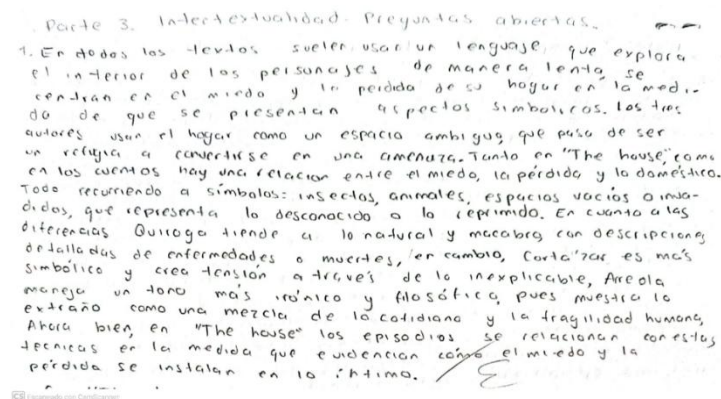 Parte 3. Intertextualidad. Preguntas abiertas.
1. En todos los textos suelen usar un lenguaje, que explora
el interior de los personajes de manera lenta, se
centran en el miedo y la perdida de su hogar en la medi-
da de que se presentan aspectos simbolicos. Los tres
autores usan el hogar como un espacio ambiguo, que pasa de ser
un refugio a convertirse en una amenaza. Tanto en "The house", como
en los cuentos hay una relacion entre el miedo, la pérdida y lo doméstico.
Todo recurriendo a símbolos: insectos, animales, espacios vacios o inva-
didos, que representa lo desconocido o lo reprimido. En cuanto a las
diferencias Quiroga tiende a lo natural y macabro con descripciones
detalladas de enfermedades o muertes, en cambio, Cortazar es más
simbólico y crea tensión a través de lo inexplicable, Arreola
maneja un tono más irónico y filosófico, pues muestra lo
extraño como una mezcla de lo cotidiano y la fragilidad humana,
Ahora bien, en "The house" los episodios se relacionan con estas
tecnicas en la medida que evidencian cómo el miedo y la
perdida se instalan en lo íntimo.
CS Escaneado con CamScanner